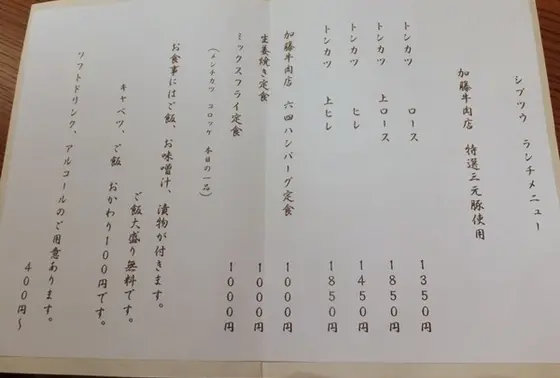 シブツウ ランチメニュー
加藤牛肉店 特選三元豚使用
トンカツ ロース 1350円
トンカツ 上ロース 1850円
トンカツ ヒレ 1450円
トンカツ 上ヒレ 1850円
加藤牛肉店 六四ハンバーグ定食 1000円
生姜焼き定食 1000円
ミックスフライ定食 1000円
(メンチカツ コロッケ 本日の一品)
お食事にはご飯、お味噌汁、漬物が付きます。
ご飯大盛り無料です。
キャベツ、ご飯 おかわり100円です。
ソフトドリンク、アルコールのご用意あります。
400円~